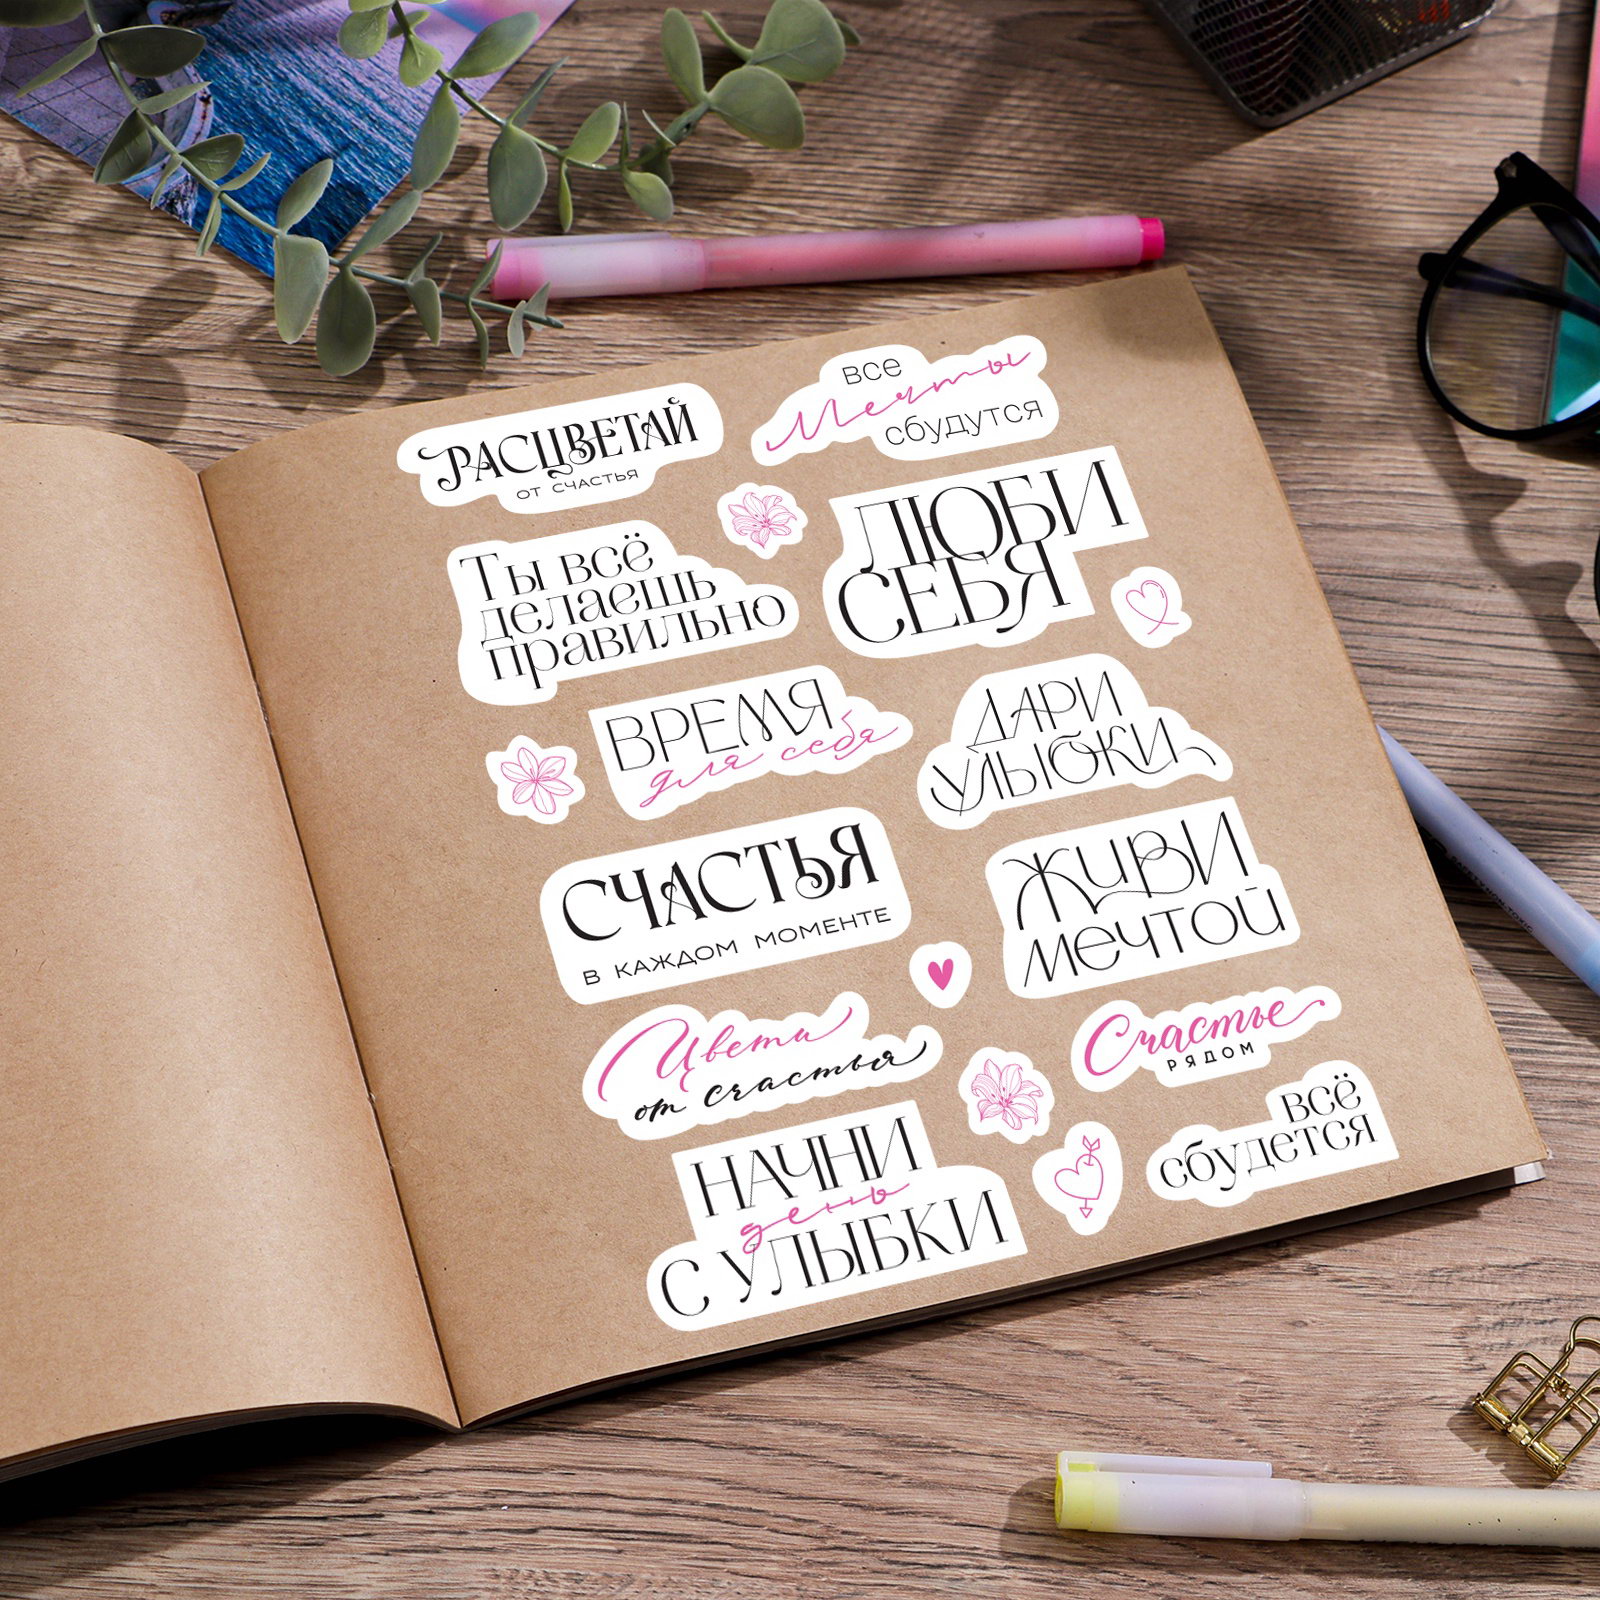 РАСЦВЕТАЙ
ОТ СЧАСТЬЯ
все
Мечты
сбудутся
Ты всё
делаешь
правильно
ЛЮБИ
СЕБЯ
ВРЕМЯ
для себя
ДАРИ
УЛЫБКИ
СЧАСТЬЯ
В КАЖДОМ МОМЕНТЕ
ЖИВИ
мечтой
Цвети
от счастья
Счастье
РЯДОМ
НАЧНИ
день
С УЛЫБКИ
всё
сбудется